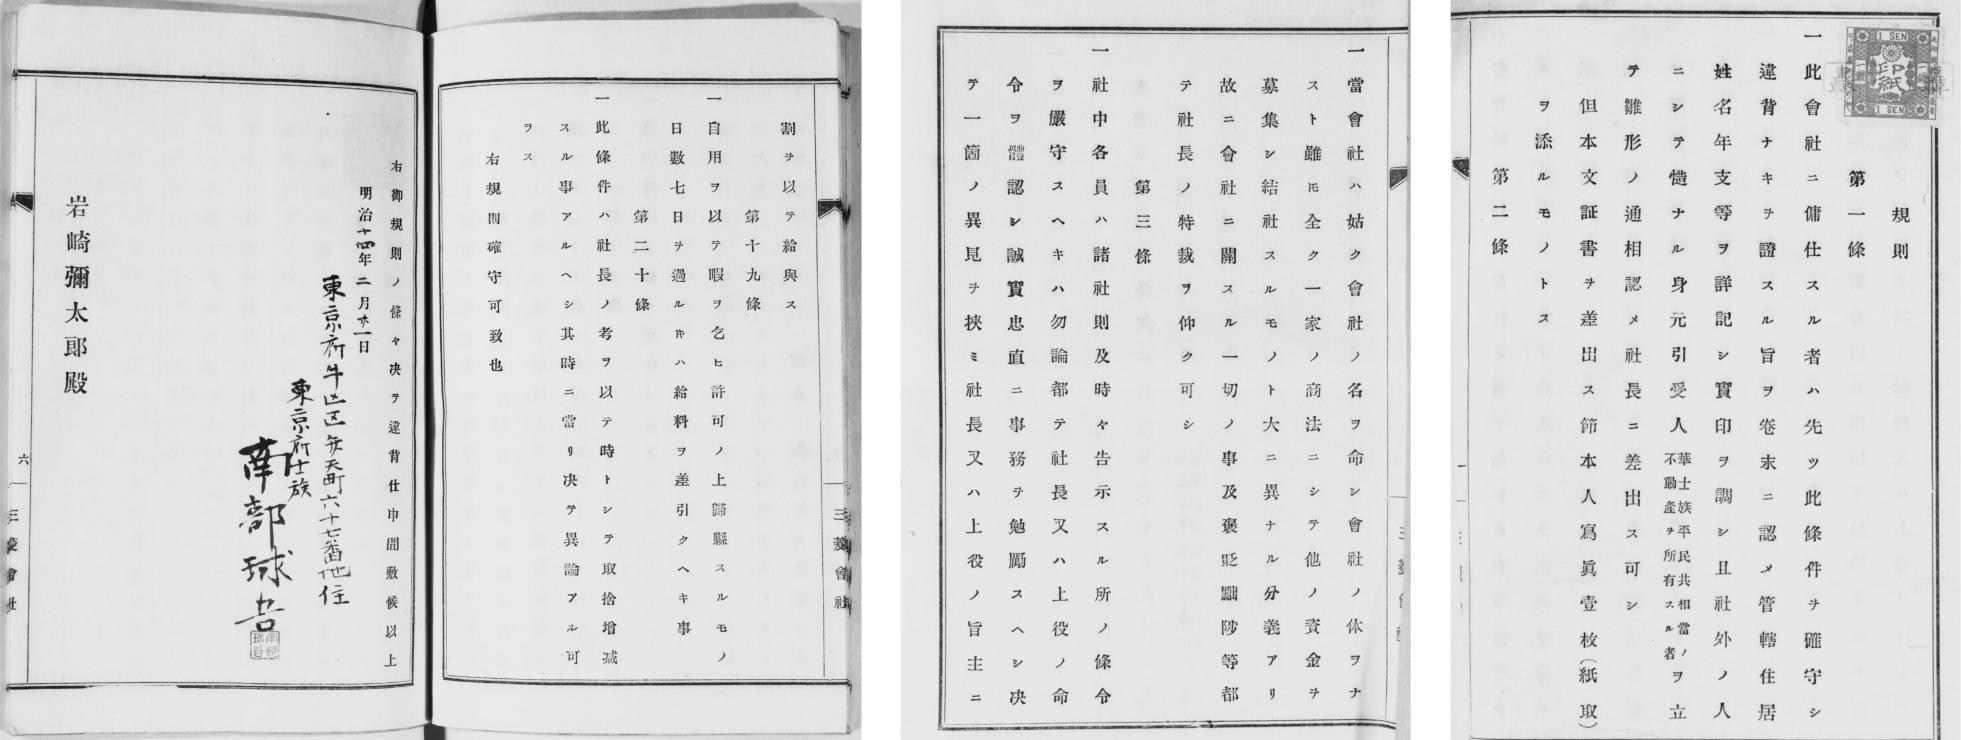 1 SEN
印紙
1 SEN
規則
第一條
一此會社ニ傭仕スル者ハ先ツ此條件ヲ確守シ
違背ナキヲ證スル旨ヲ卷末ニ認メ管轄住居
姓名年支等ヲ詳記シ實印ヲ調シ且社外ノ人
ニシテ慥ナル身元引受人華士族平民共相當ノ不動產ヲ所有スル者ヲ立
テ雛形ノ通相認メ社長ニ差出ス可シ
但本文証書ヲ差出ス節本人寫眞壹枚(紙取)
ヲ添ルモノトス
第二條
一當會社ハ姑ク會社ノ名ヲ命シ會社ノ休ヲナ
スト雖モ全ク一家ノ商法ニシテ他ノ資金ヲ
募集シ結社スルモノト大ニ異ナル分義アリ
故ニ會社ニ關スル一切ノ事及褒貶黜陟等都
テ社長ノ特裁ヲ仰ク可シ
第三條
一社中各員ハ諸社則及時々告示スル所ノ條令
ヲ嚴守スヘキハ勿論都テ社長又ハ上役ノ命
令ヲ體認シ誠實忠直ニ事務ヲ勉勵スヘシ决
テ一箇ノ異見ヲ挾ミ社長又ハ上役ノ旨主ニ
割ヲ以テ給與ス
第十九條
一自用ヲ以テ暇ヲ乞ヒ許可ノ上歸縣スルモノ
日數七日ヲ過ルキハ給料ヲ差引クヘキ事
第二十條
一此條件ハ社長ノ考ヲ以テ時トシテ取捨增減
スル事アルヘシ其時ニ當リ决テ異論アル可
ヲス
右規則確守可致也
三菱會社
右御規則ノ條々决テ違背仕申間敷候以上
明治十四年二月廿一日
東京府牛込区弁天町六十七番地住
東京府士族
南部球吾
岩崎彌太郎殿
六
三菱會社